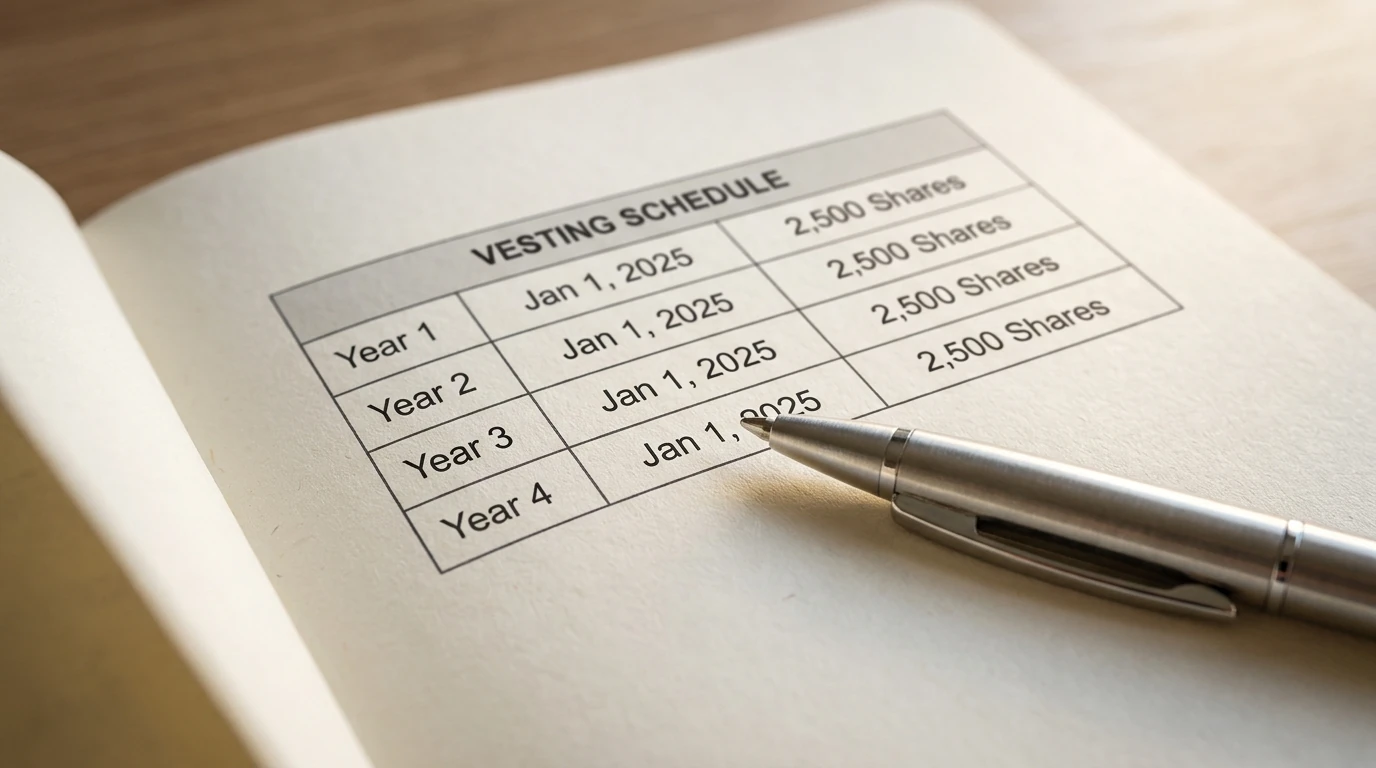 VESTING SCHEDULE
Year 1 Jan 1, 2025 2,500 Shares
Year 2 Jan 1, 2025 2,500 Shares
Year 3 Jan 1, 2025 2,500 Shares
Year 4 Jan 1, 2025 2,500 Shares